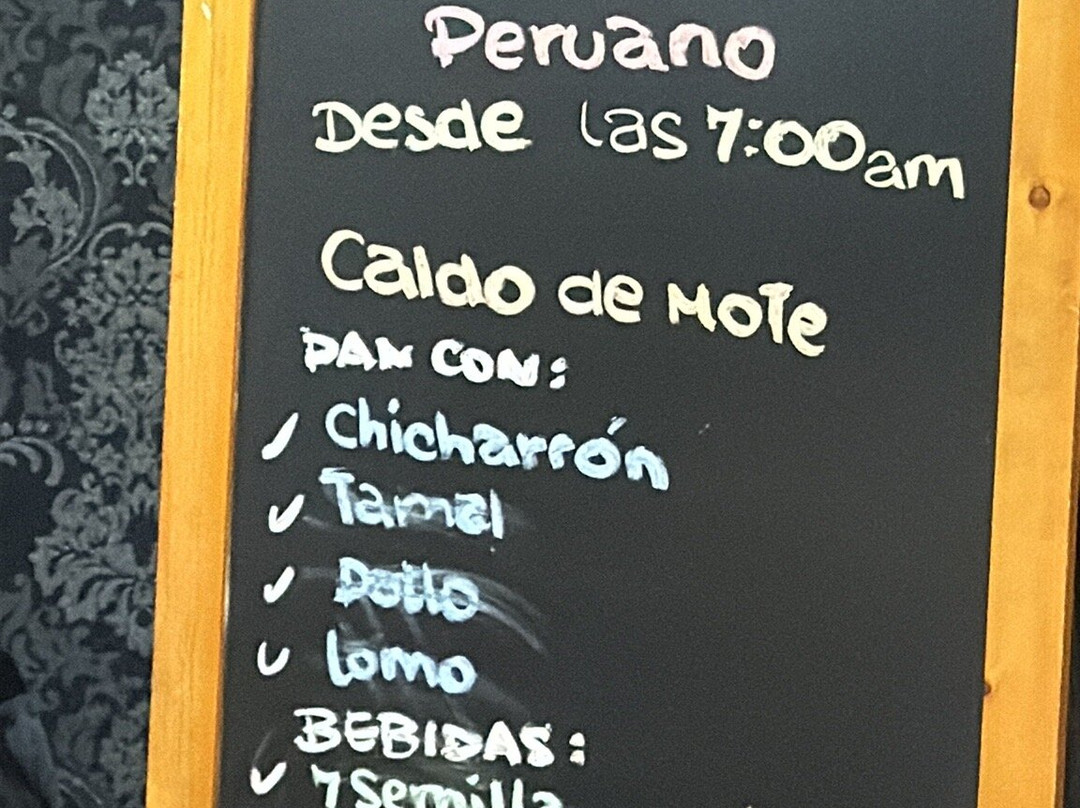 Peruano
Desde las 7:00am
Caldo de Mote
PAN CON:
✓ Chicharrón
✓ Tamal
✓ Pollo
✓ lomo
BEBIDAS:
✓ 7 Semilla